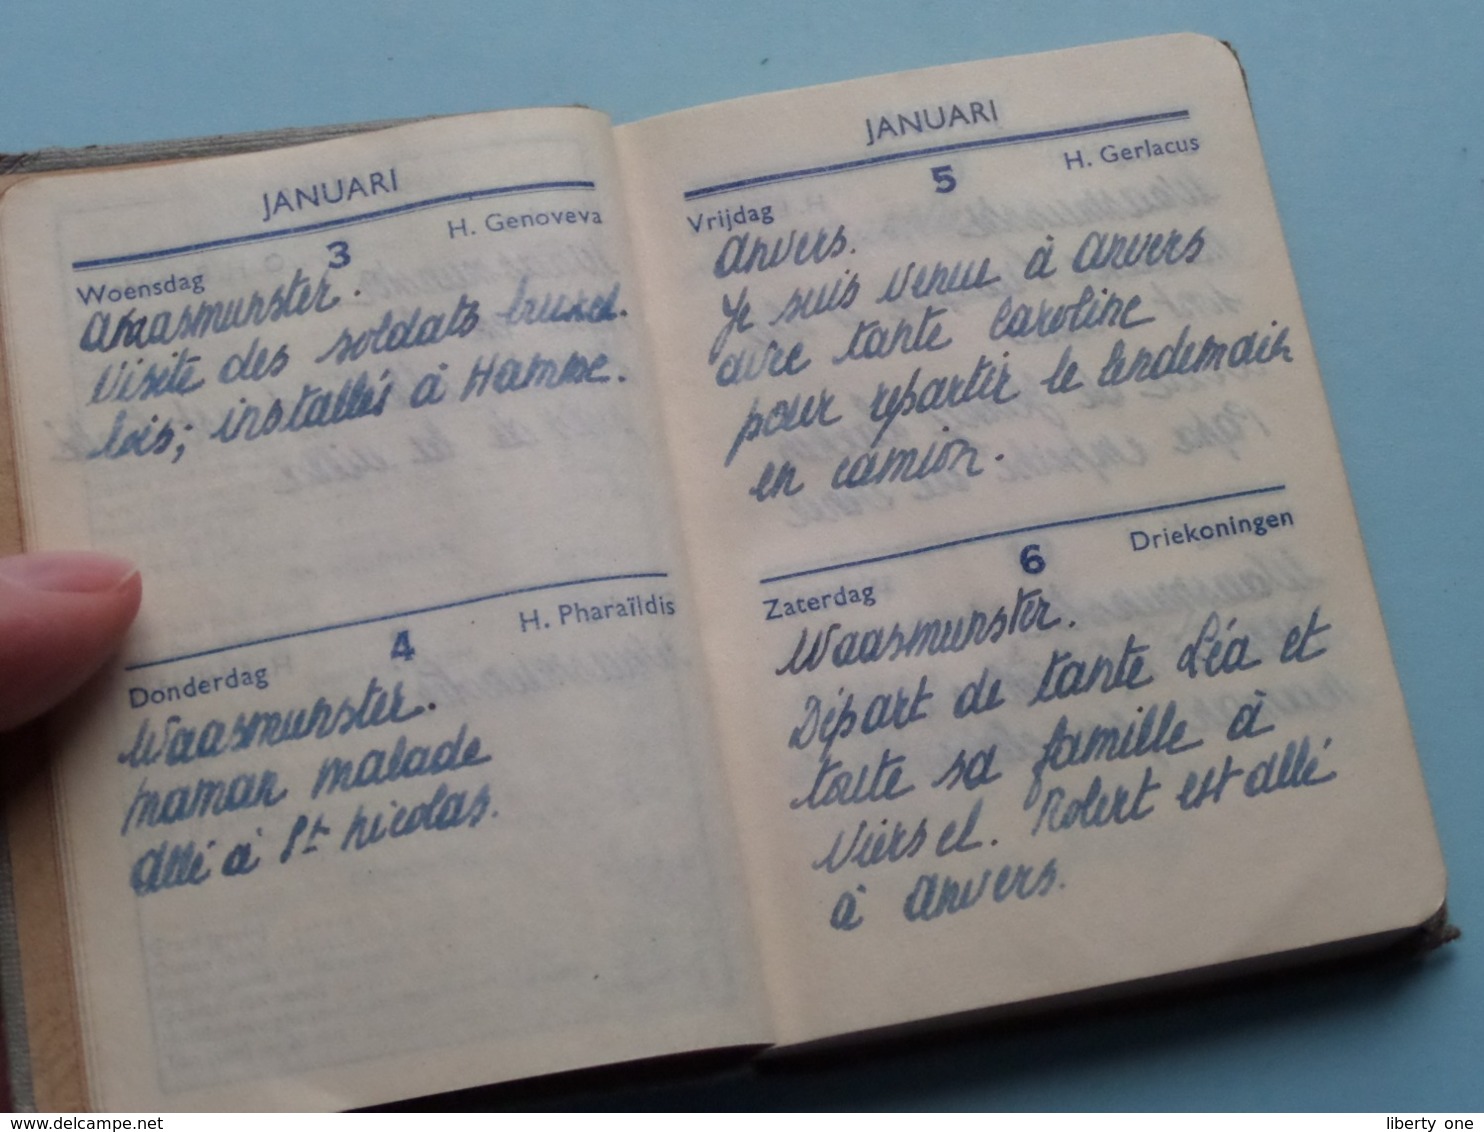 JANUARI
3
H. Genoveva
Woensdag
Waasmunster.
Visite des soldats bruxel.
lois; installés à Hamme.
4
H. Pharaïldis
Donderdag
Waasmunster.
maman malade
allé à St. Nicolas.
JANUARI
5
H. Gerlacus
Vrijdag
Anvers.
Je suis venue à Anvers
avec tante Caroline
pour repartir le lendemain
en camion.
6
Driekoningen
Zaterdag
Waasmunster.
Départ de tante Léa et
toute sa famille à
Viersel. Robert est allé
à Anvers.
www.delcampe.net
liberty one